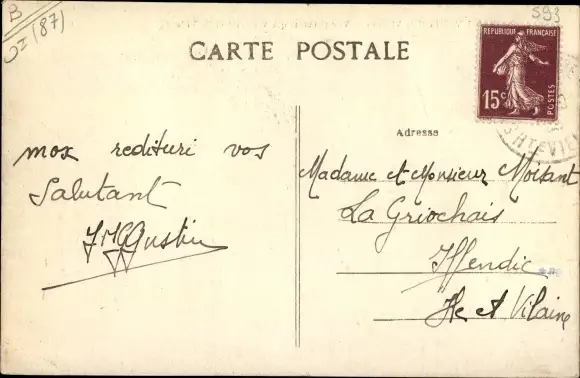 B
(87)
593
CARTE POSTALE
REPUBLIQUE FRANÇAISE
15c
POSTES
Adresse
mox redituri vos
Salutant
Madame et Monsieur Moisant
La Griochais
Iffendic
Ile et Vilaine